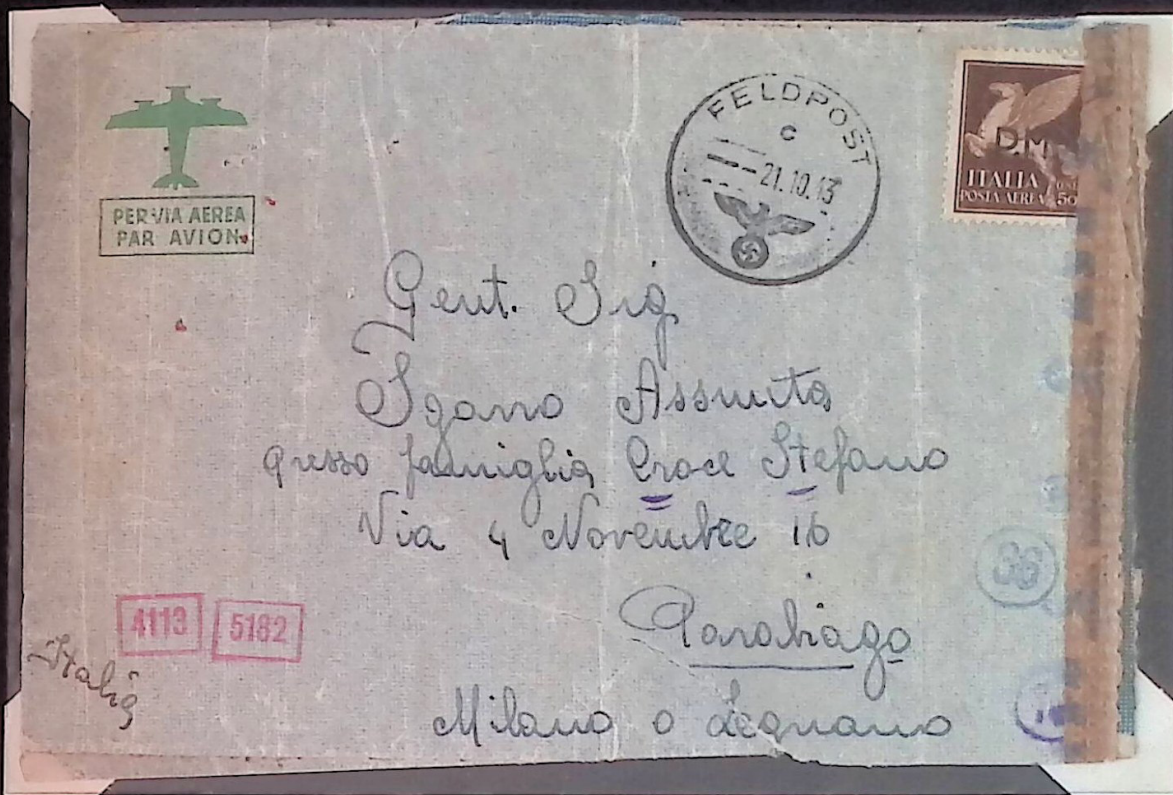 PER VIA AEREA
PAR AVION
FELDPOST
c
21.10.43
D.M
ITALIA
POSTA AEREA 50
Gent. Sig
Sgarro Assunta
presso famiglia Croce Stefano
Via 4 Novembre 16
Parabiago
Milano o Legnano
4113 5182
Italia